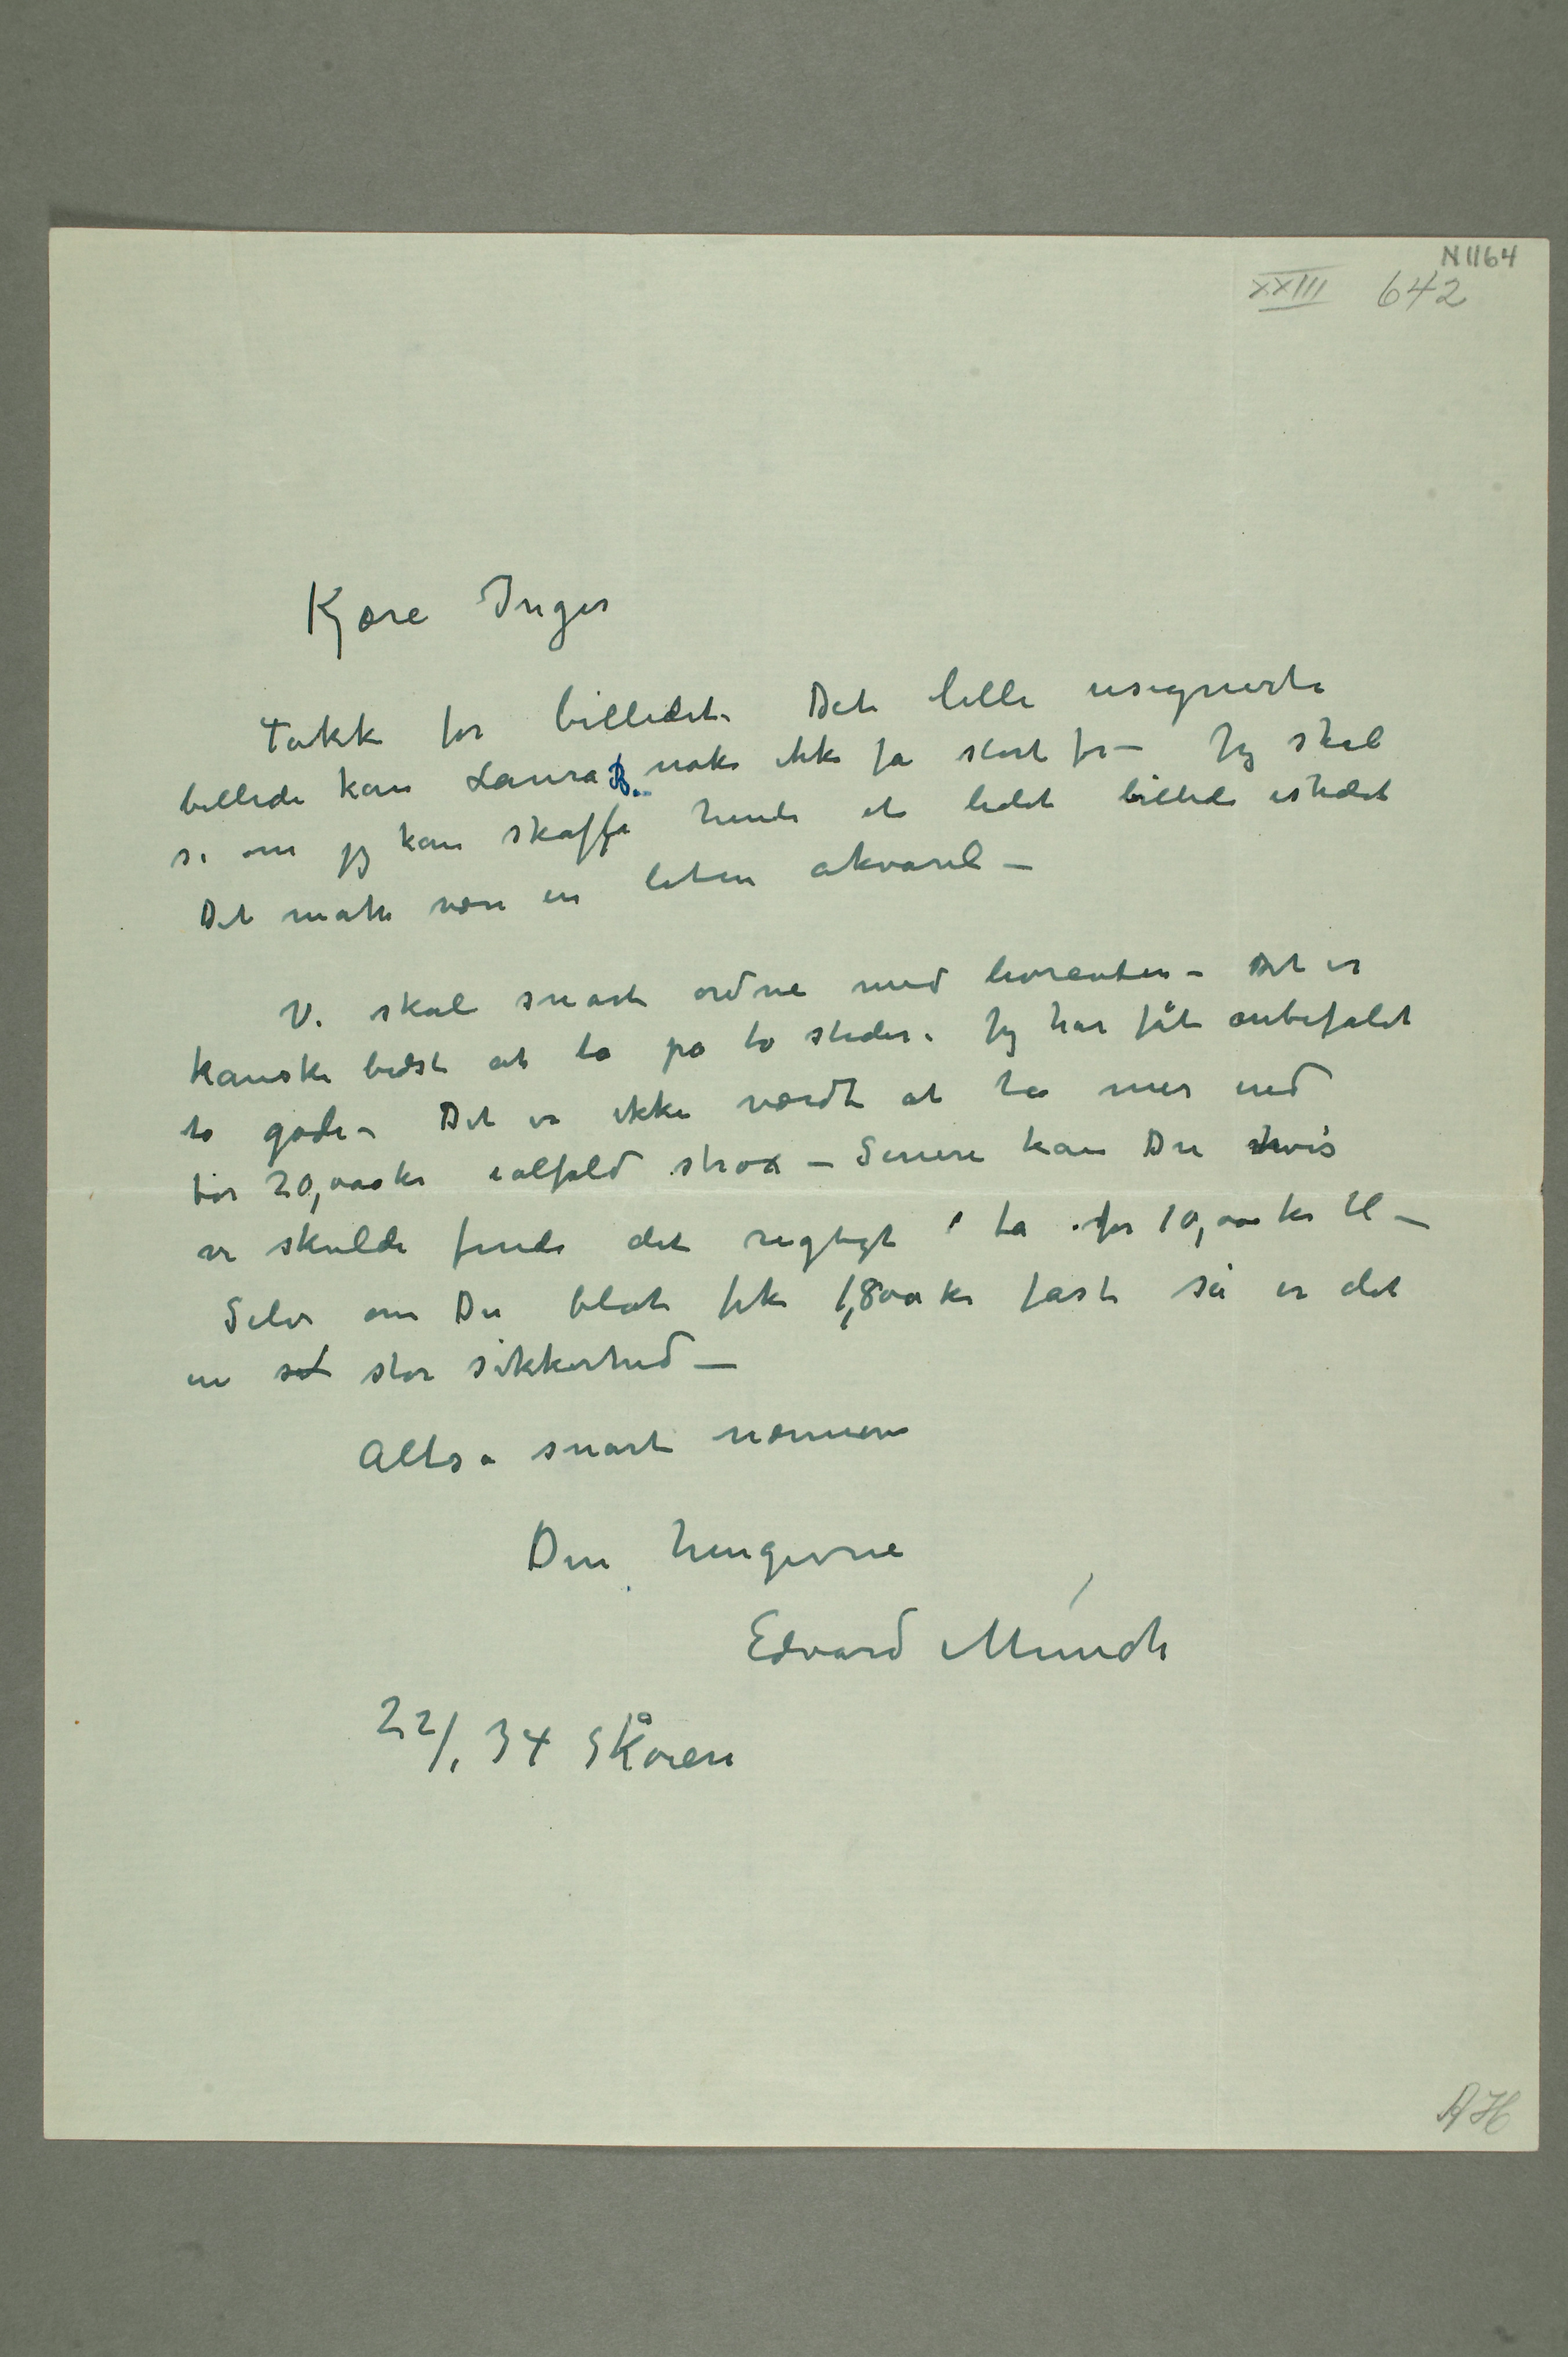 N 1164
XXIII 642
Kjære Inger
Takk for billedet. Det lille usignerte
billede kan Laura B. nok ikke få stort for – Jeg skal
se om jeg kan skaffe hende et lidet billede istedet
Det måtte være en liten akvarel –
Vi skal snart ordne med livrenten – Det er
kanske bedst at ta på to steder. Jeg har fåt anbefalet
to gode – Det er ikke værdt at ta mer end
for 20,000 kr ialfald strax – Senere kan Du hvis
vi skulde finde det rigtigt ta for 10,000 kr til –
Selv om Du blot fik 1,800 kr fast så er det
en stor sikkerhed –
Altså snart nærmere
Din hengivne
Edvard Munch
22/1 34 Skøien
AH